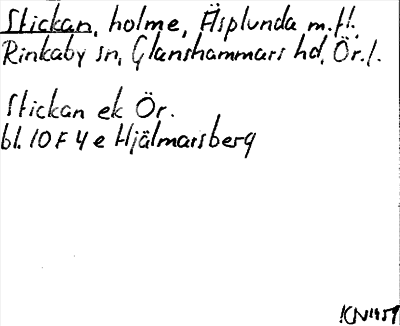 Stickan, holme, Äsplunda m.fl.
Rinkaby sn, Glanshammars hd, Ör.l.
Stickan ek Ör.
bl. 10 F 4 e Hjälmarsberg